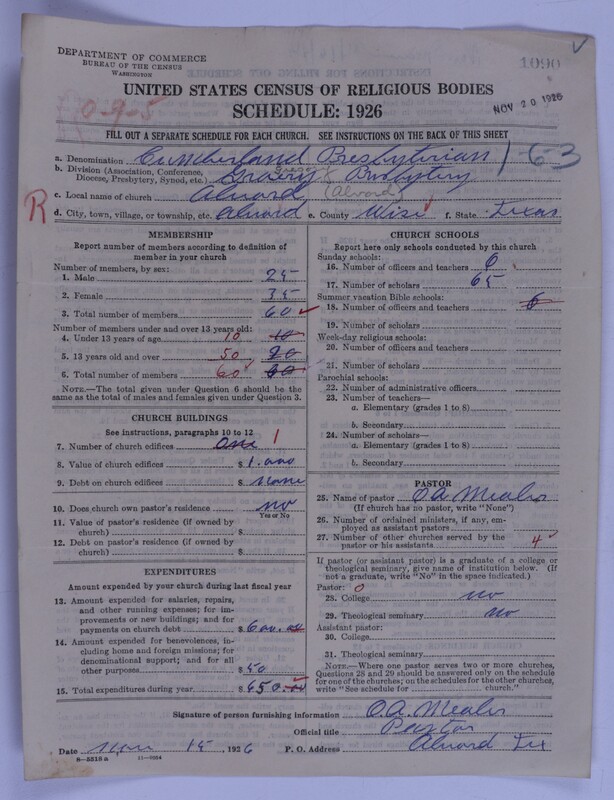 DEPARTMENT OF COMMERCE
BUREAU OF THE CENSUS
WASHINGTON
1090
UNITED STATES CENSUS OF RELIGIOUS BODIES
SCHEDULE: 1926
NOV 20 1926
0-9-5
FILL OUT A SEPARATE SCHEDULE FOR EACH CHURCH. SEE INSTRUCTIONS ON THE BACK OF THIS SHEET
a. Denomination Cumberland Presbyterian 1-63
b. Division (Association, Conference, Diocese, Presbytery, Synod, etc.) Presbytery
c. Local name of church Alvord (Alvord)
R
d. City, town, village, or township, etc. Alvord e. County Wise f. State Texas
MEMBERSHIP
Report number of members according to definition of member in your church
Number of members, by sex:
1. Male 25
2. Female 35
3. Total number of members 60
Number of members under and over 13 years old:
4. Under 13 years of age 10 10
5. 13 years old and over 50 20
6. Total number of members 60
NOTE.—The total given under Question 6 should be the same as the total of males and females given under Question 3.
CHURCH BUILDINGS
See instructions, paragraphs 10 to 12
7. Number of church edifices One 1
8. Value of church edifices $ 1.000
9. Debt on church edifices $ None
10. Does church own pastor's residence? no
Yes or No
11. Value of pastor's residence (if owned by church) $
12. Debt on pastor's residence (if owned by church) $
EXPENDITURES
Amount expended by your church during last fiscal year
13. Amount expended for salaries, repairs, and other running expenses; for improvements or new buildings; and for payments on church debt $ 600.00
14. Amount expended for benevolences, including home and foreign missions; for denominational support; and for all other purposes $ 50
15. Total expenditures during year $ 650.00
CHURCH SCHOOLS
Report here only schools conducted by this church
Sunday schools:
16. Number of officers and teachers 6
17. Number of scholars 65
Summer vacation Bible schools:
18. Number of officers and teachers 6
19. Number of scholars
Week-day religious schools:
20. Number of officers and teachers
21. Number of scholars
Parochial schools:
22. Number of administrative officers
23. Number of teachers—
a. Elementary (grades 1 to 8)
b. Secondary
24. Number of scholars—
a. Elementary (grades 1 to 8)
b. Secondary
PASTOR
25. Name of pastor O.A. Mealer
(If church has no pastor, write "None")
26. Number of ordained ministers, if any, employed as assistant pastors
27. Number of other churches served by the pastor or his assistants 4
If pastor (or assistant pastor) is a graduate of a college or theological seminary, give name of institution below. (If not a graduate, write "No" in the space indicated.)
Pastor: 0
28. College no
29. Theological seminary no
Assistant pastor:
30. College
31. Theological seminary
NOTE.—Where one pastor serves two or more churches, Questions 28 and 29 should be answered only on the schedule for one of the churches; on the schedules for the other churches, write "See schedule for church."
Signature of person furnishing information O.A. Mealer
Official title Pastor
Date 15, 1926 P. O. Address Alvord Tex
8—5518 a 11—9064